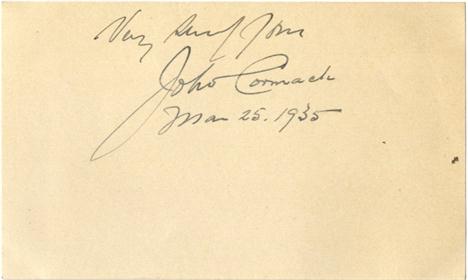 Very truly yours
John Cormack
Mar 25. 1935